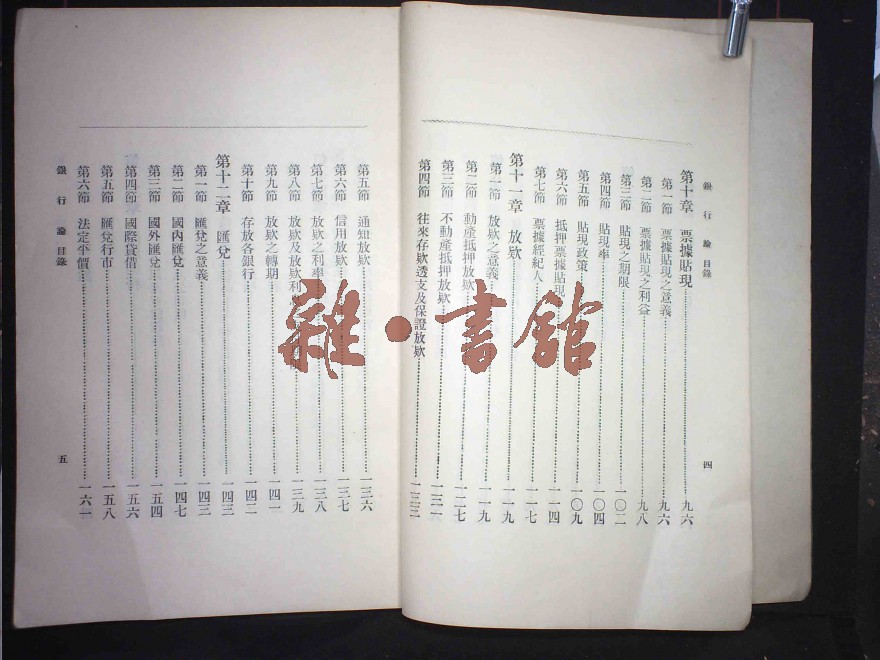 銀行論 目錄
第十章 票據貼現 九六
第一節 票據貼現之意義 九六
第二節 票據貼現之利益 九八
第三節 貼現之期限 一〇二
第四節 貼現率 一〇四
第五節 貼現政策 一〇九
第六節 抵押票據貼現 一一四
第七節 票據經紀人 一一七
第十一章 放欵 一一九
第一節 放欵之意義 一一九
第二節 動產抵押放欵 一二七
第三節 不動產抵押放欵 一三一
第四節 往來存欵透支及保證放欵 一三三
四
第五節 通知放欵 一三六
第六節 信用放欵 一三七
第七節 放欵之利率 一三八
第八節 放欵及放欵利 一三九
第九節 放欵之轉期 一四一
第十節 存放各銀行 一四二
第十二章 匯兌 一四三
第一節 匯兌之意義 一四三
第二節 國內匯兌 一四七
第三節 國外匯兌 一五四
第四節 國際貸借 一五六
第五節 匯兌行市 一五八
第六節 法定平價 一六一
銀行論 目錄
五
雜·書館